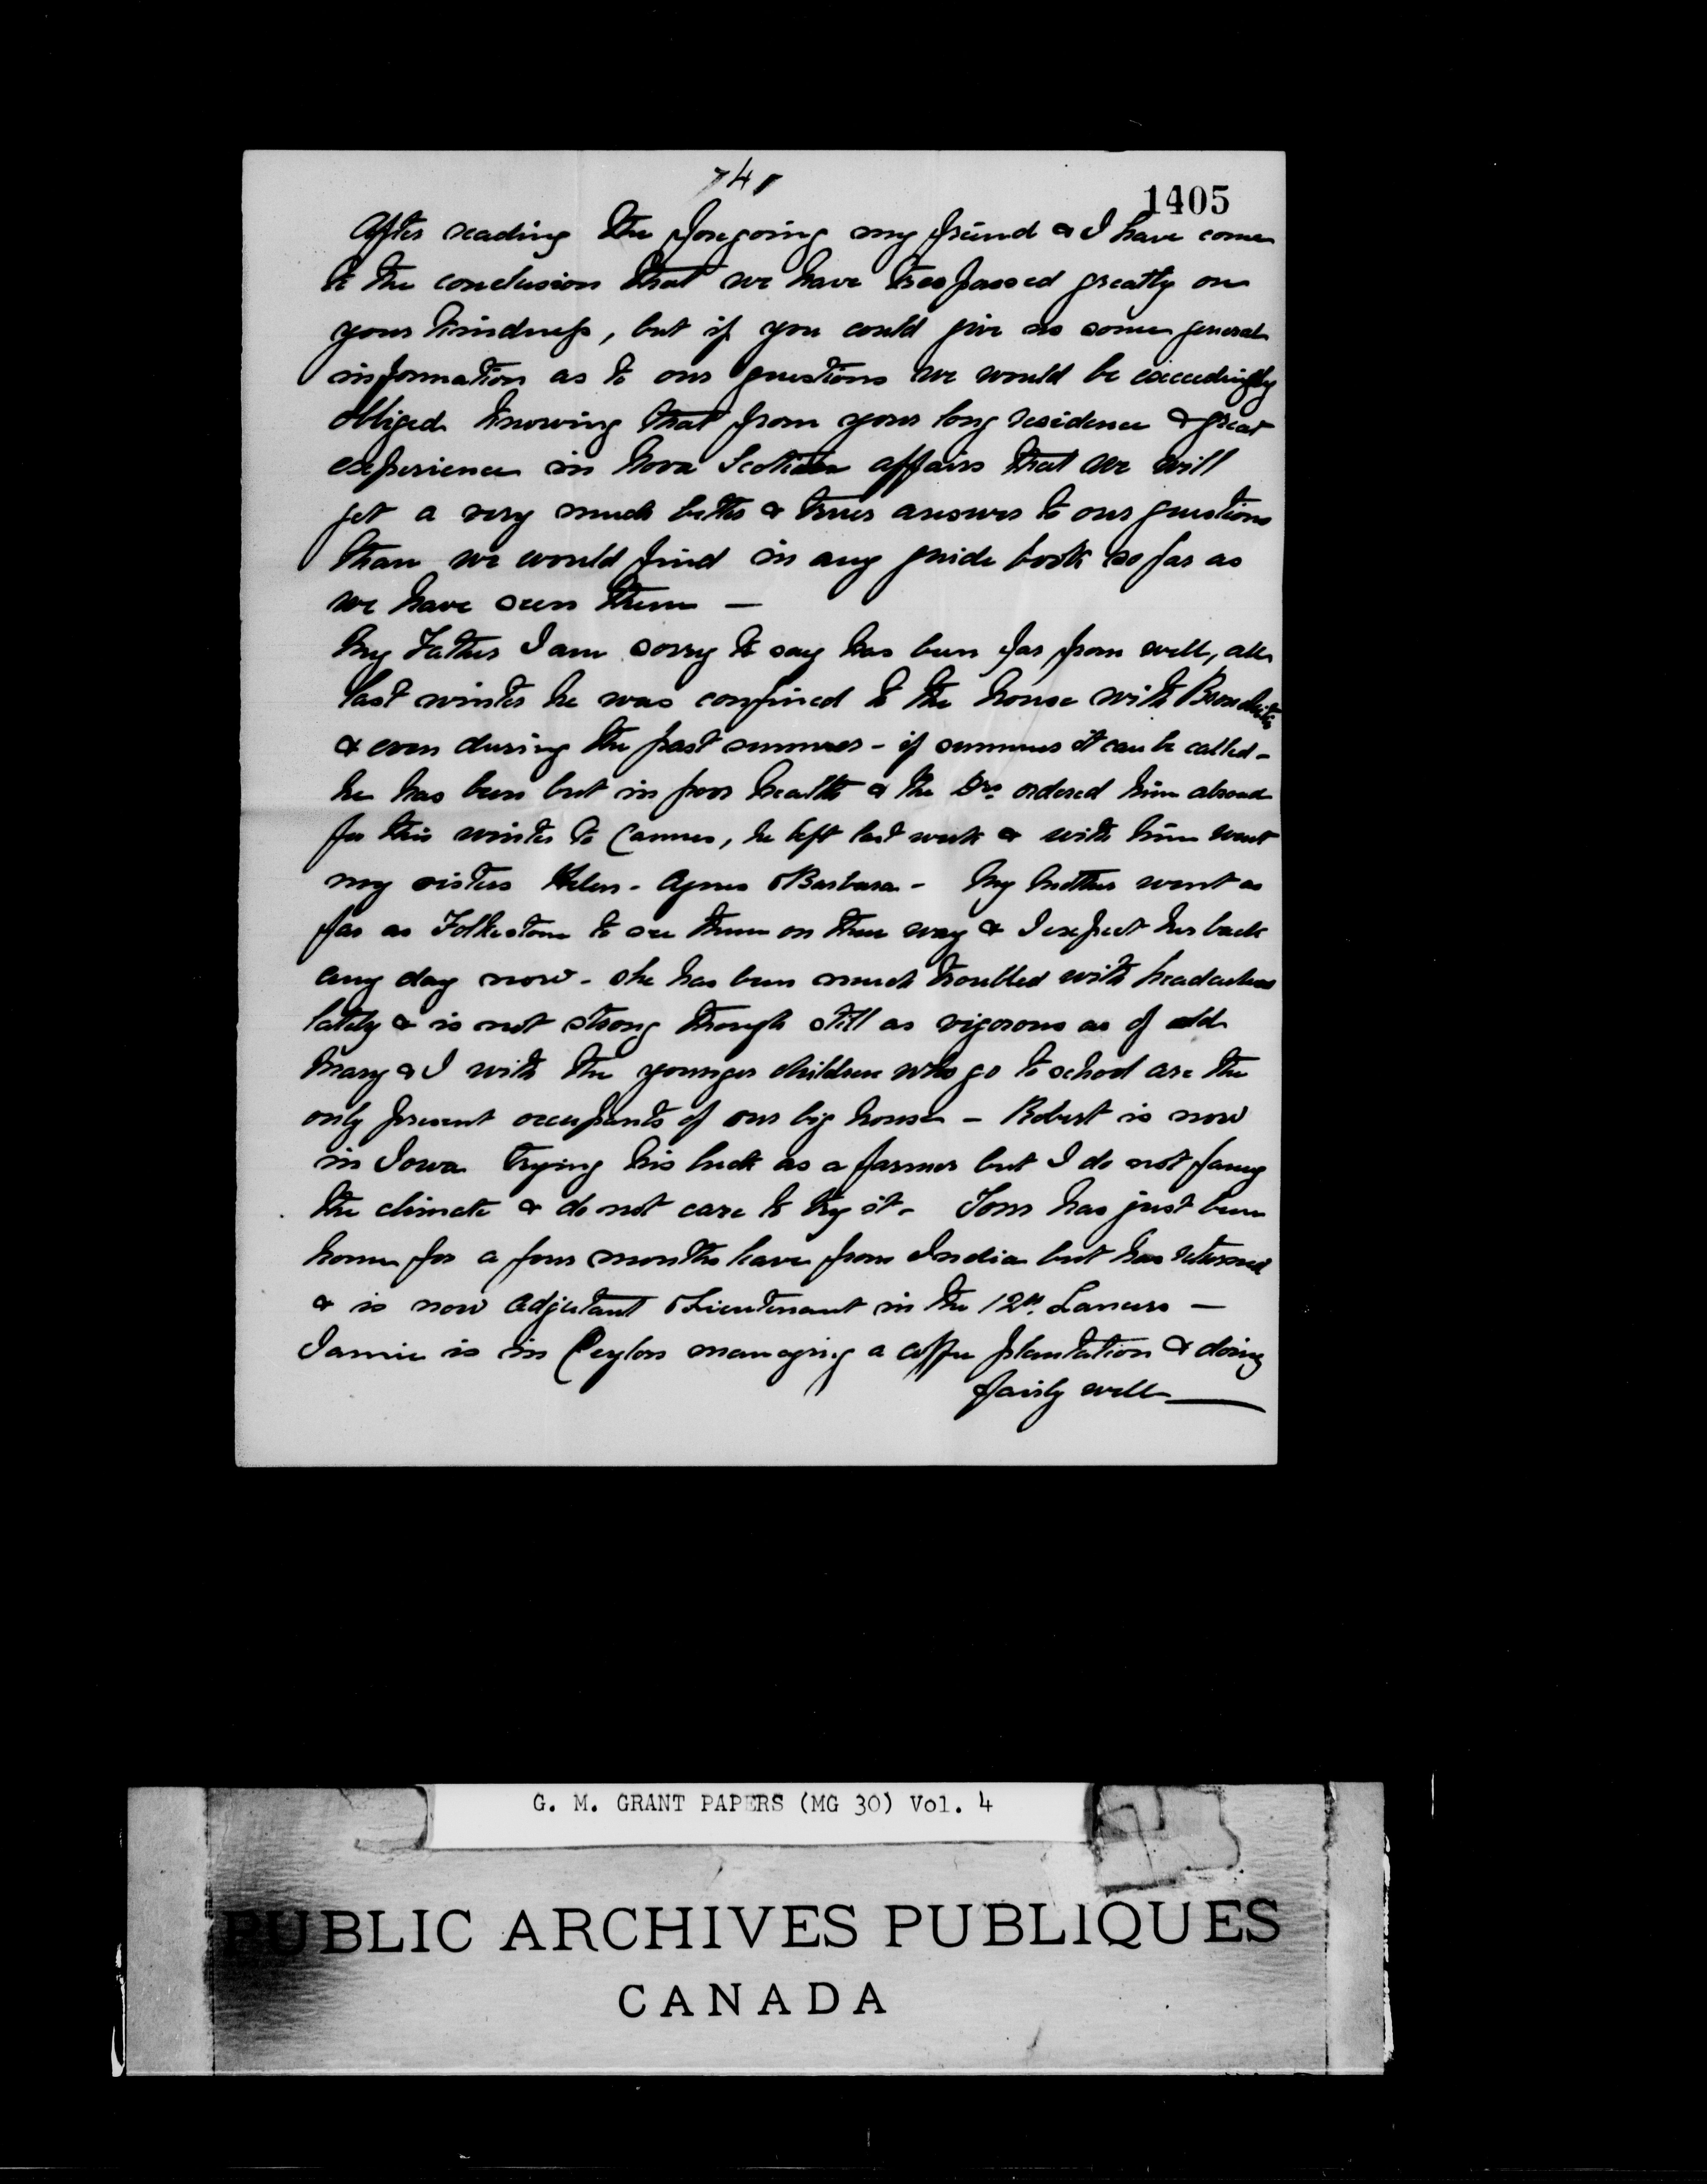 4
1405
After reading the foregoing my friend & I have come
to the conclusion that we have trespassed greatly on
your kindness, but if you could give us some general
information as to our questions we would be exceedingly
obliged knowing that from your long residence & great
experience in Nova Scotian affairs that we will
get a very much better & truer answer to our questions
than we would find in any guide book so far as
we have seen them —
My Father I am sorry to say has been far from well, all
last winter he was confined to the house with Bronchitis
& even during the past summer - if summer it can be called -
he has been but in poor health & the Drs ordered him abroad
for this winter to Cannes, he left last week & with him went
my sisters Helen - Agnes & Barbara - My Mother went as
far as Folkestone to see them on their way & I expect her back
any day now - she has been much troubled with headaches
lately & is not strong though still as vigorous as of old
Mary & I with the younger children who go to school are the
only present occupants of our big house - Robert is now
in Iowa trying his luck as a farmer but I do not fancy
the climate & do not care to try it - Tom has just been
home for a four months leave from India but has returned
& is now Adjutant & Lieutenant in the 12th Lancers —
Jamie is in Ceylon managing a coffee plantation & doing
fairly well —
G. M. GRANT PAPERS (MG 30) Vol. 4
PUBLIC ARCHIVES PUBLIQUES
CANADA